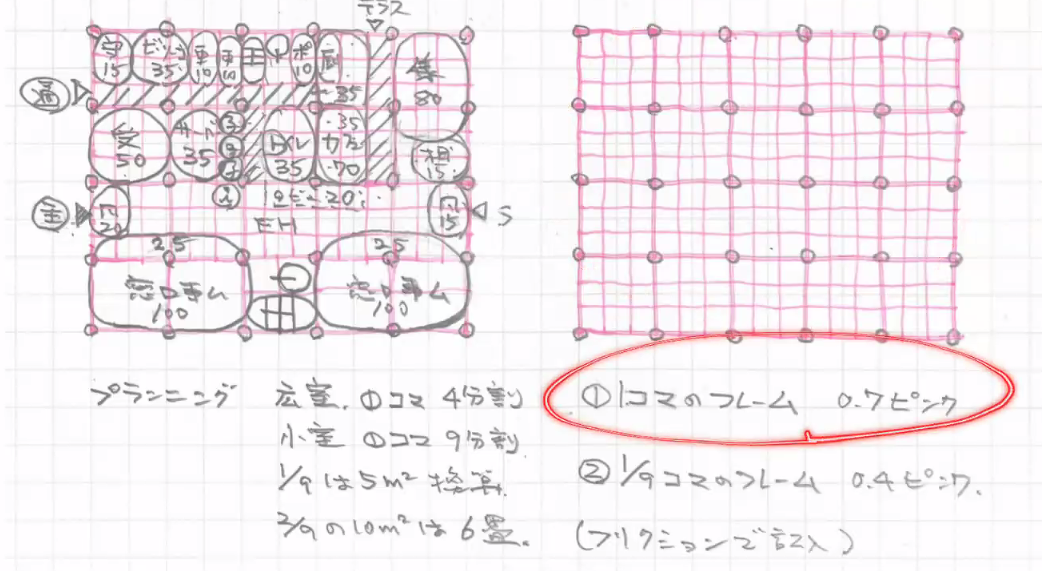 テラス
守 15
ビップ 35
更 10
更 10
ポ 10
厨 35
集 80
通
受 50
サーバ 35
トイレ 35
35
カフェ 70
相 15
主
风 20
EH
风 15
S
25
25
窓口事ム 100
窓口事ム 100
プランニング 広室、①コマ 4分割
小室 ①コマ 9分割
1/9は5m² 換算
2/9の10m²は6畳。
①1コマのフレーム 0.7ピンク
②1/9コマのフレーム 0.4ピンク.
(フリクションで記入)